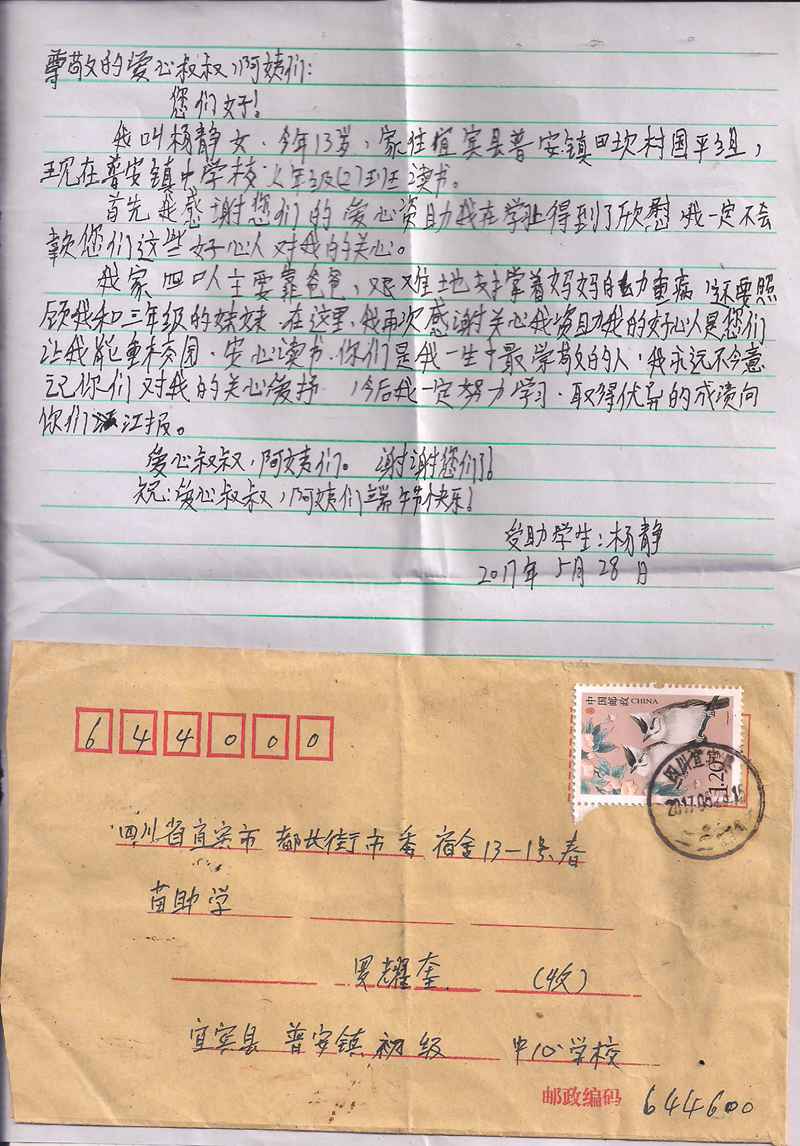 尊敬的爱心叔叔,阿姨们:
您们好!
我叫杨静女、今年13岁,家住宜宾县普安镇四坎村国平组,
现在普安镇中学校 年级(2)班读书。
首先我感谢您们的爱心资助我在学业得到了欣慰 我一定不会
您们这些好心人对我的关心。
我家四口人主要靠爸爸,艰难地支撑着妈妈的 重病,还要照
顾我和三年级的妹妹、在这里,我再次感谢关心我资助我的好心人是您们
让我能重 校园、安心读书、你们是我一生中最 敬的人,我永远不会
记你们对我的关心爱 ,今后我一定努力学习、取得优异的成绩向
你们 江报。
爱心叔叔,阿姨们。 谢谢您们了!
祝:爱心叔叔,阿姨们端午节快乐!
受助学生:杨静
2017年 5月 28日
644000
中国邮政 CHINA
1.20
四川宜宾
2017.06
四川省宜宾市 都长街市委 宿舍13-1号春
苗助学
罗耀奎 (收)
宜宾县 普安镇 初级 中心学校
邮政编码 644600